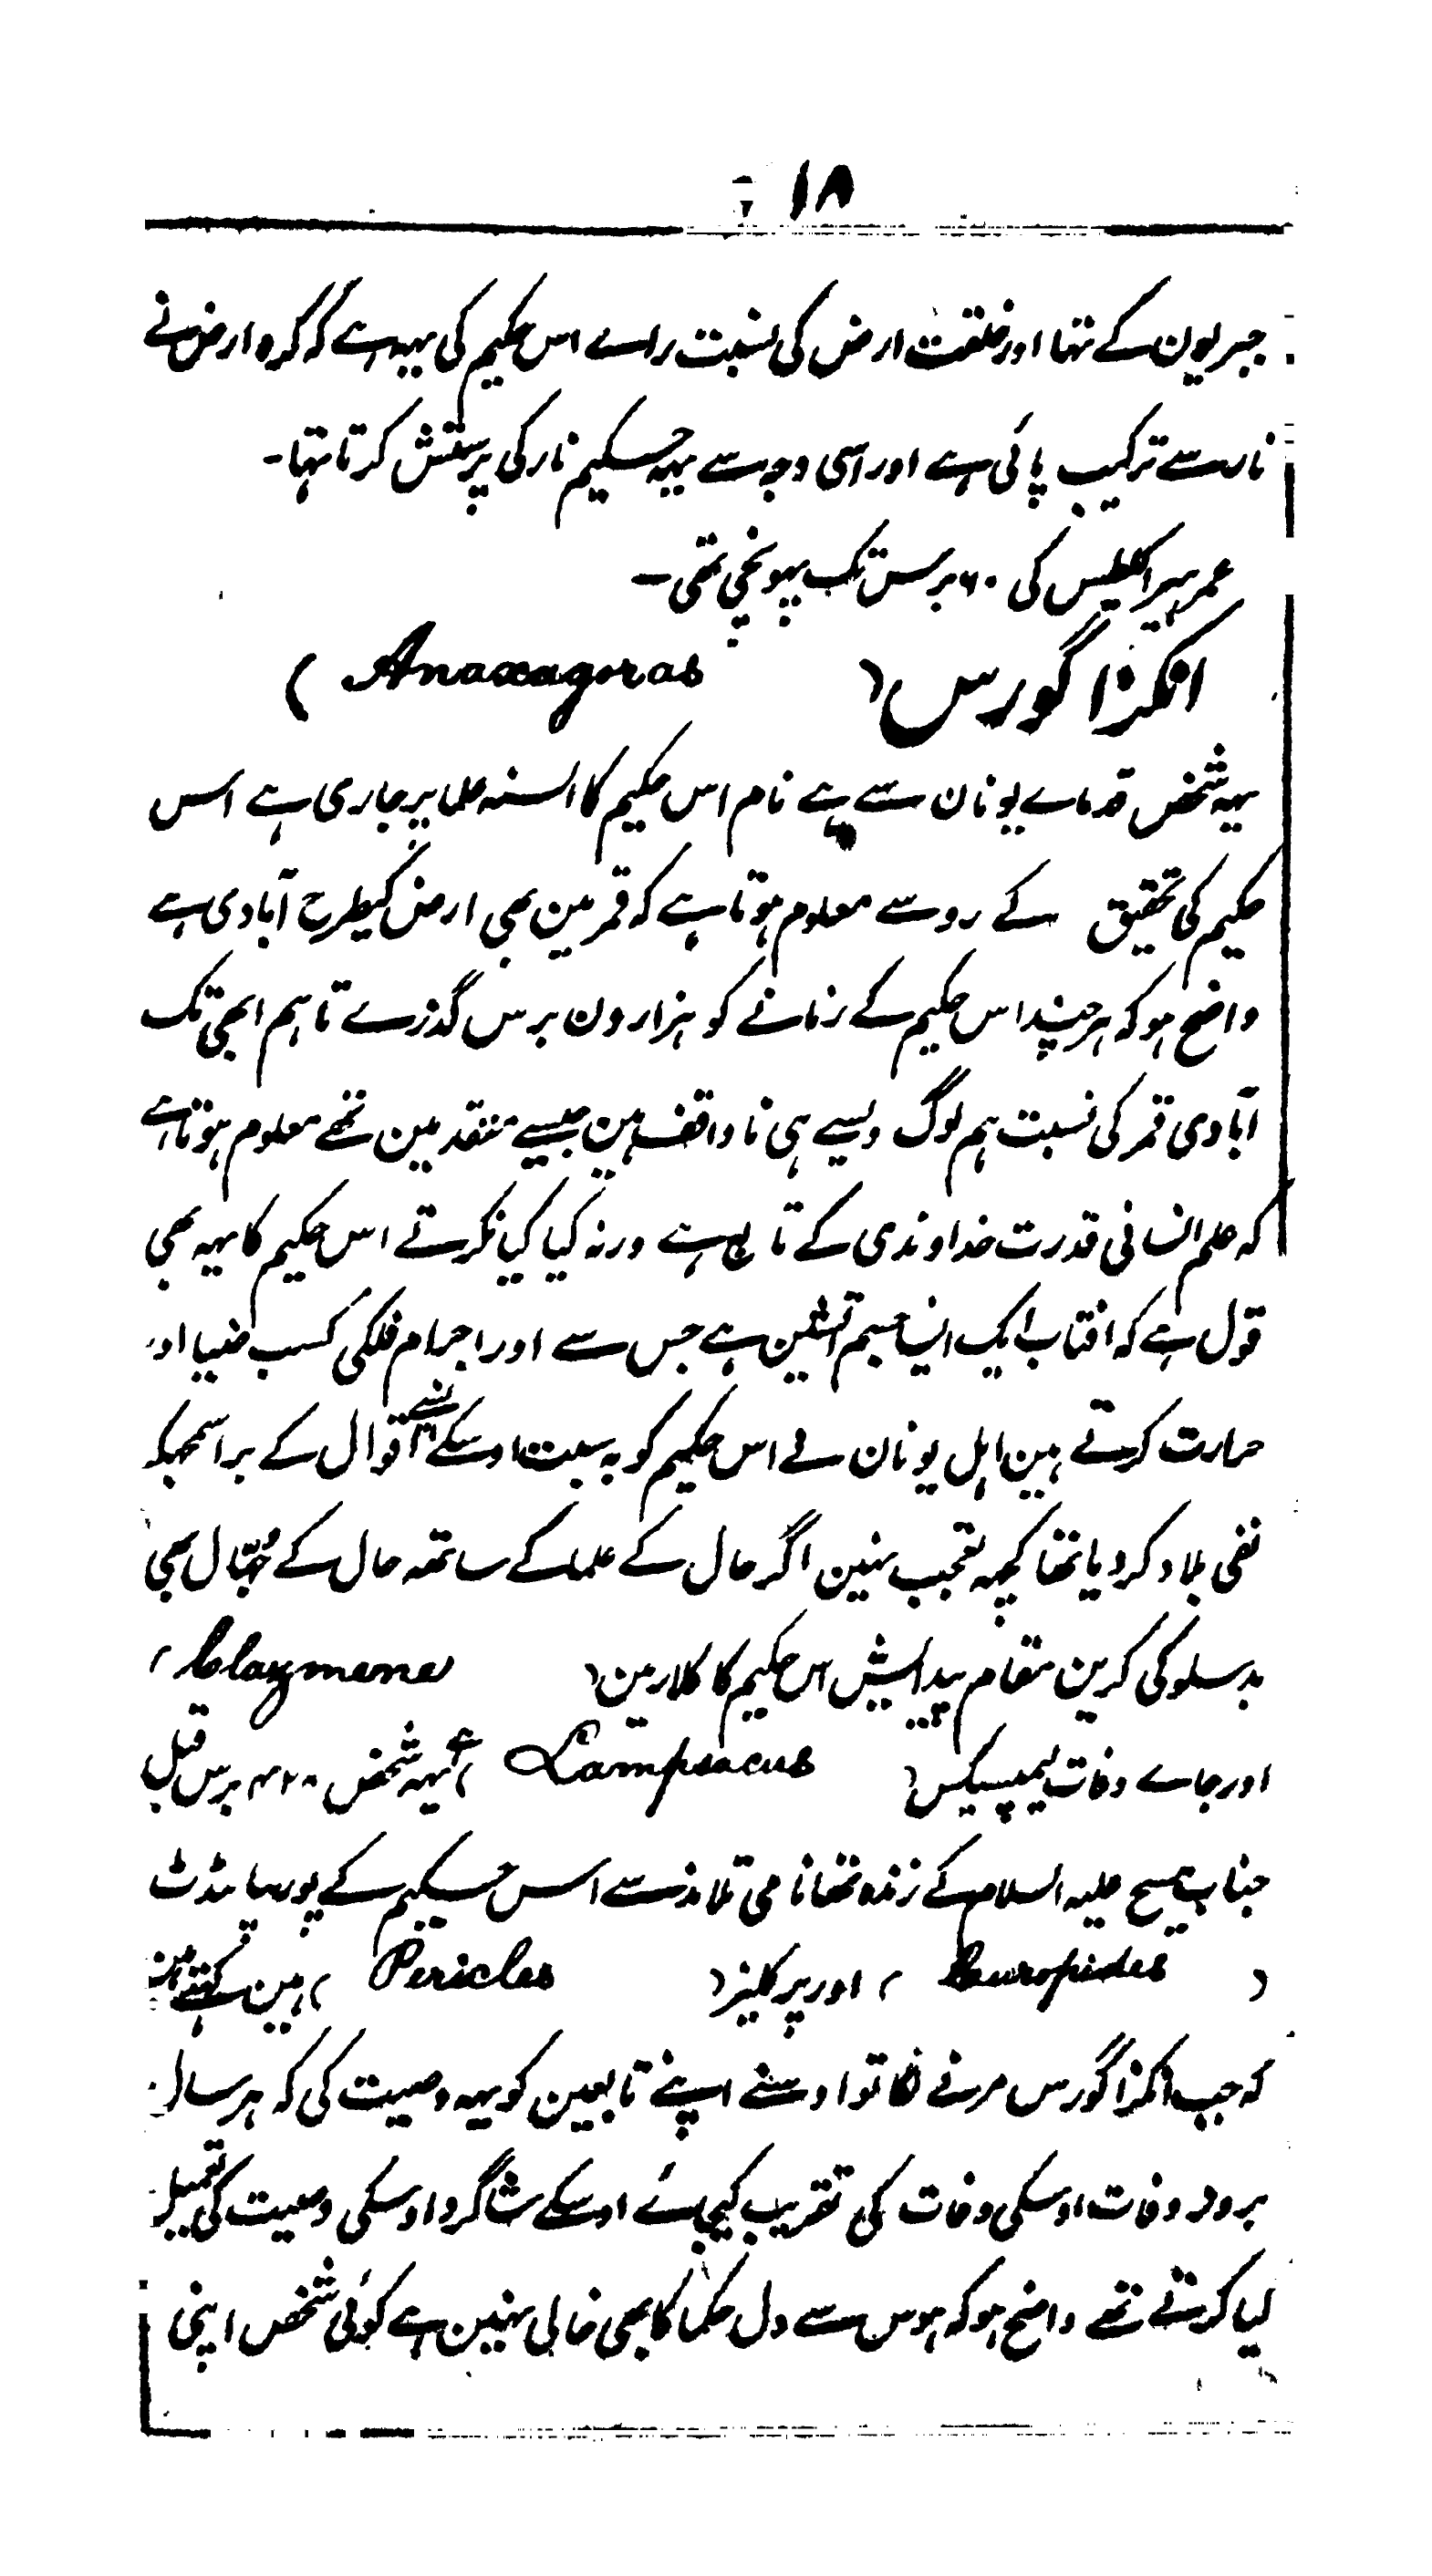 ۱۸
جبریون کے تھا اور خلقت ارض کی نسبت راے اس حکیم کی یہہ ہے کہ کرہ ارض نے
نار سے ترکیب پائی ہے اور اسی وجہ سے یہہ حکیم نار کی پرستش کرتا تہا۔
عمر ہیراکلیطس کی ۶۰ برس تک پہونچی تھی۔
انکزاگورس ( Anaxagoras )
یہہ شخص قدماے یونان سے ہے نام اس حکیم کا السنہ علما پر جاری ہے اس
حکیم کی تحقیق کے رو سے معلوم ہوتا ہے کہ قمر مین بھی ارض کیطرح آبادی ہے
واضح ہو کہ ہر چند اس حکیم کے زمانے کو ہزارون برس گذرے تاہم ابھی تک
آبادی قمر کی نسبت ہم لوگ ویسے ہی ناواقف ہین جیسے متقدمین تھے معلوم ہوتا ہے
کہ علم انسانی قدرت خداوندی کے تابع ہے ورنہ کیا کیا نکرتے اس حکیم کا یہہ بھی
قول ہے کہ افتاب ایک ایسا جسم آتشین ہے جس سے اور اجرام فلکی کسب ضیا اور
حرارت کرتے ہین اہل یونان نے اس حکیم کو بہ سبب اوسکے ایسے اقوال کے برا سمجھکر
نفی بلاد کر دیا تھا کچہہ تعجب نہین اگر حال کے علما کے ساتھہ حال کے جُہّال بھی
بدسلوکی کرین مقام پیدایش اس حکیم کا کلازمین ( Clazmene )
اور جاے وفات لیمپسیکس ( Lampsacus ) ہے یہہ شخص ۴۲۸ برس قبل
جناب مسیح علیہ السلام کے زندہ تھا نامی تلامذہ سے اس حکیم کے یوریپائڈٹ
( Europides ) اور پرکلیز ( Pericles ) ہین کہتے ہین
کہ جب انکزاگورس مرنے لگا تو اوسنے اپنے تابعین کو یہہ وصیت کی کہ ہر سال
بروز وفات اوسکی وفات کی تقریب کیجائے اوسکے شاگرد اوسکی وصیت کی تعمیل
کیا کرتے تھے واضح ہو کہ ہوس سے دل حکما کا بھی خالی نہین ہے کوئی شخص اپنی